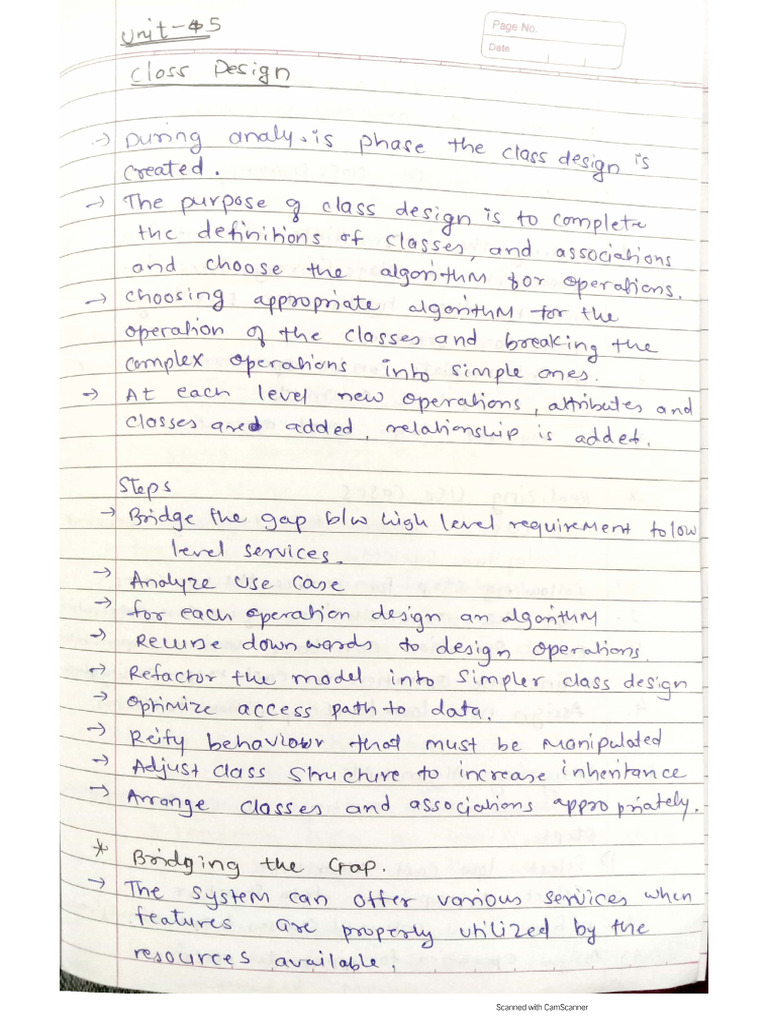 Unit-5
Page No.
Date
Class Design
-> During analysis phase the class design is
created.
-> The purpose of class design is to complete
the definitions of classes, and associations
and choose the algorithm for operations.
-> choosing appropriate algorithm for the
operation of the classes and breaking the
complex operations into simple ones.
-> At each level new operations, attributes and
classes are added, relationship is added.
Steps
-> Bridge the gap b/w high level requirement to low
level services.
-> Analyze use case
-> for each operation design an algorithm
-> Recurse downwards to design operations.
-> Refactor the model into simpler class design
-> Optimize access path to data.
-> Reify behaviour that must be manipulated
-> Adjust class structure to increase inheritance
-> Arrange classes and associations appropriately.
* Bridging the Gap.
-> The system can offer various services when
features are properly utilized by the
resources available.
Scanned with CamScanner